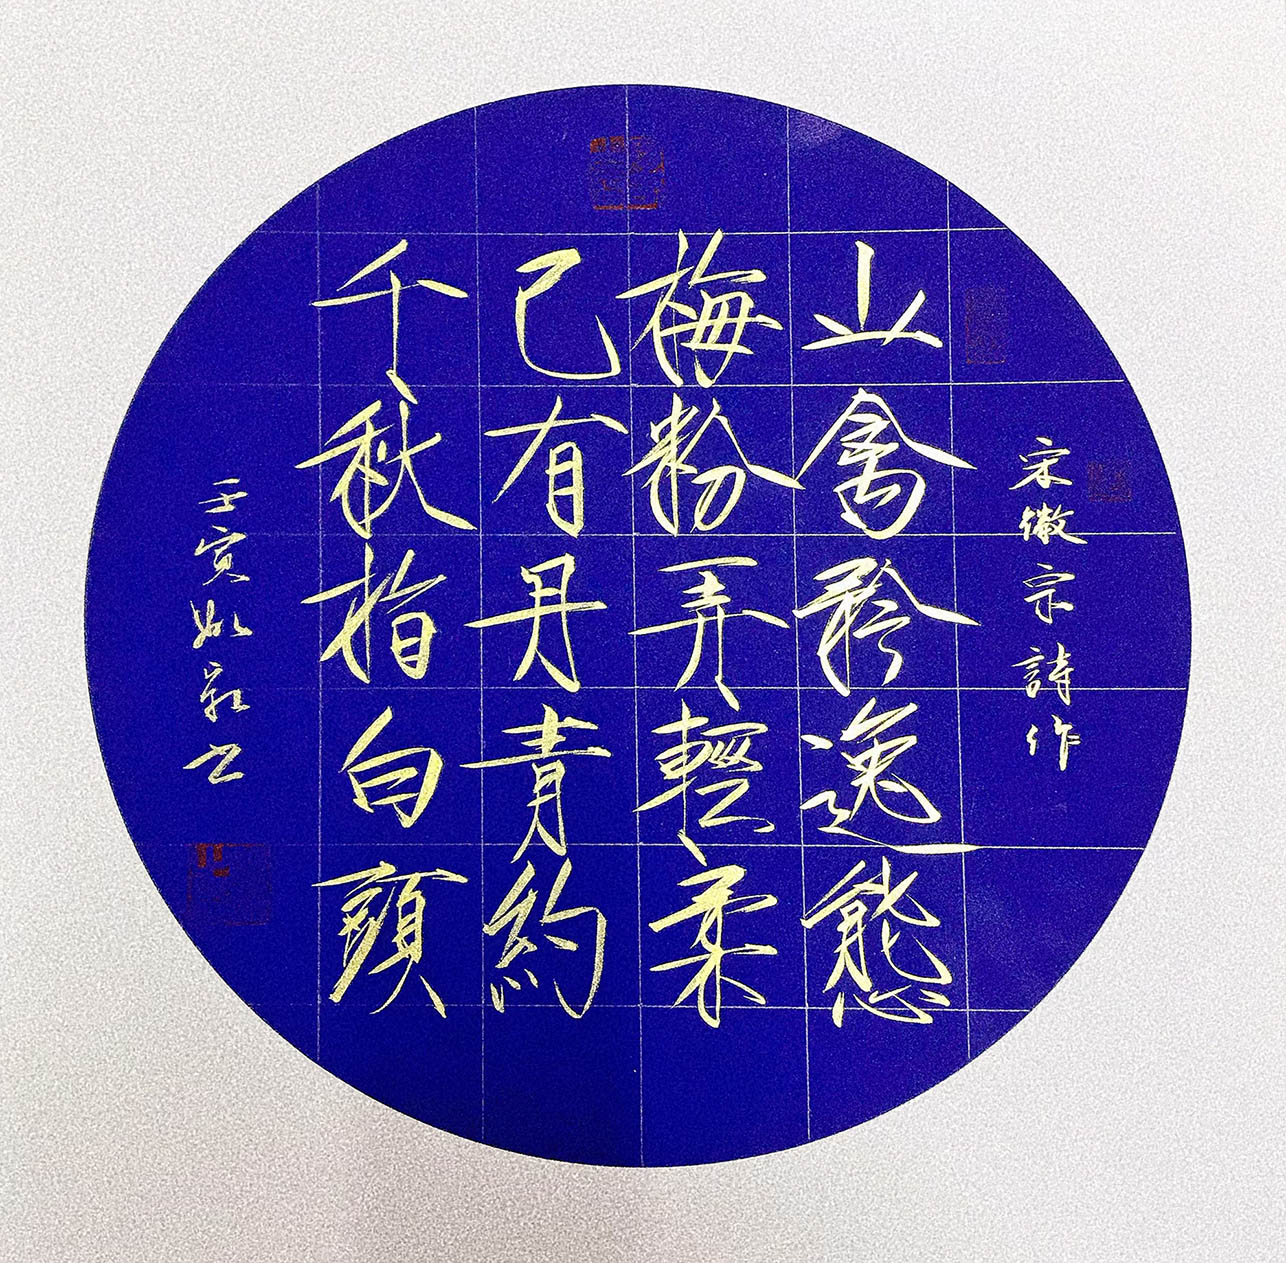 宋徽宗詩作
山禽矜逸態
梅粉弄輕柔
已有丹青約
千秋指白頭
壬寅